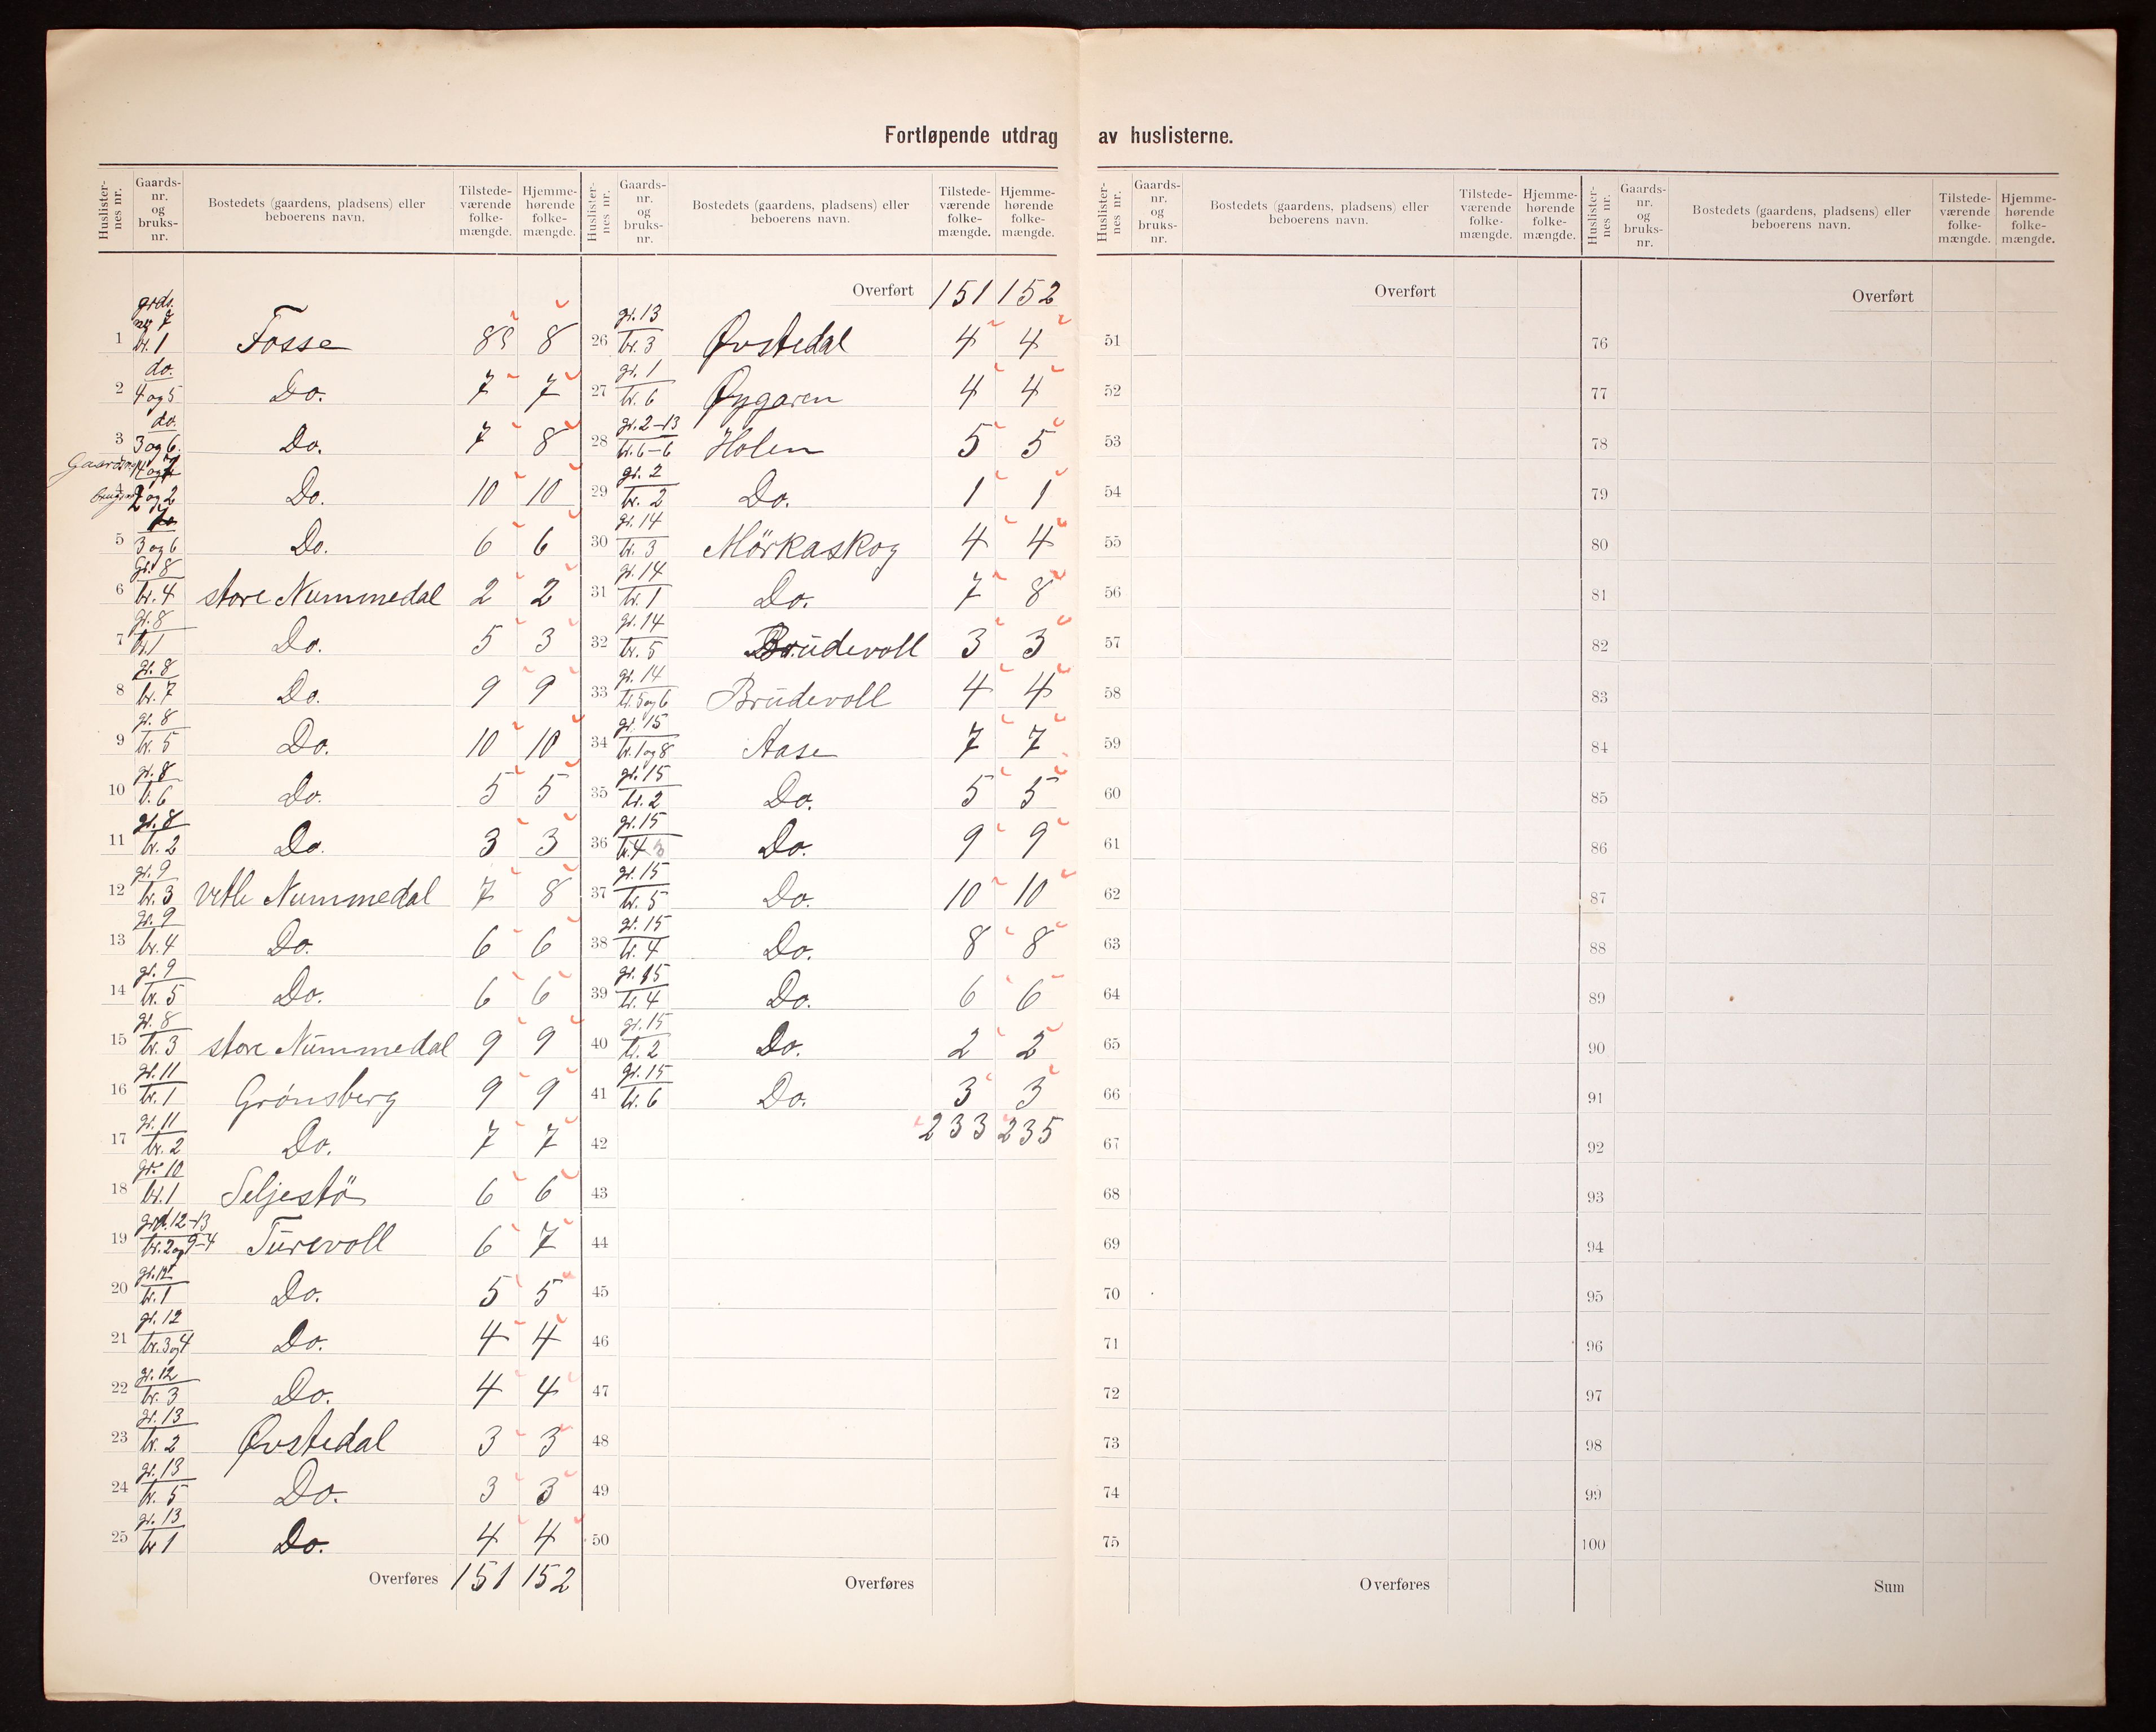 Fortløpende utdrag av huslisterne.
Huslisternes nr. Gaardsnr. og bruksnr. Bostedets (gaardens, pladsens) eller beboerens navn. Tilstedeværende folkemængde. Hjemmehørende folkemængde.
1 grds nr 7 br. 1 Fosse 8 8
2 do. 4 og 5 Do. 7 7
3 do. 3 og 6. Do. 7 8
Do. 10 10
5 3 og 6 Do. 6 6
6 gr. 8 br. 4 store Nummedal 2 2
7 gr. 8 br. 1 Do. 5 3
8 gr. 8 br. 7 Do. 9 9
9 gr. 8 br. 5 Do. 10 10
10 gr. 8 b. 6 Do. 5 5
11 gr. 8 br. 2 Do. 3 3
12 gr. 9 br. 3 vetle Nummedal 7 8
13 gr. 9 br. 4 Do. 6 6
14 gr. 9 br. 5 Do. 6 6
15 gr. 8 br. 3 store Nummedal 9 9
16 gr. 11 br. 1 Grönsberg 9 9
17 gr. 11 br. 2 Do. 7 7
18 gr. 10 br. 1 Seljestö 6 6
19 grd. 12-13 br. 2 og 9-4 Turevoll 6 7
20 gr. 12 br. 1 Do. 5 5
21 gr. 12 br. 3 og 4 Do. 4 4
22 gr. 12 br. 3 Do. 4 4
23 gr. 13 br. 2 Øvstedal 3 3
24 gr. 13 br. 5 Do. 3 3
25 gr. 13 br 1 Do. 4 4
Overføres 151 152
Huslisternes nr. Gaardsnr. og bruksnr. Bostedets (gaardens, pladsens) eller beboerens navn. Tilstedeværende folkemængde. Hjemmehørende folkemængde.
Overført 151 152
26 gr. 13 br. 3 Øvstedal 4 4
27 gr. 1 br. 6 Øygaren 4 4
28 gr. 2-13 br. 6-6 Holen 5 5
29 gr. 2 br. 2 Do. 1 1
30 gr. 14 br. 3 Mörkaskog 4 4
31 gr. 14 br. 1 Do. 7 8
32 gr. 14 br. 5 Brudevoll 3 3
33 gr. 14 br. 5 og 6 Brudevoll 4 4
34 gr. 15 br. 1 og 8 Aase 7 7
35 gr. 15 br. 2 Do. 5 5
36 gr. 15 br. 4 3 Do. 9 9
37 gr. 15 br. 5 Do. 10 10
38 gr. 15 br. 4 Do. 8 8
39 gr. 15 br. 4 Do. 6 6
40 gr. 15 br. 2 Do. 2 2
41 gr. 15 br. 6 Do. 3 3
42 233 235
43
44
45
46
47
48
49
50
Overføres
Huslisternes nr. Gaardsnr. og bruksnr. Bostedets (gaardens, pladsens) eller beboerens navn. Tilstedeværende folkemængde. Hjemmehørende folkemængde.
Overført
51
52
53
54
55
56
57
58
59
60
61
62
63
64
65
66
67
68
69
70
71
72
73
74
75
Overføres
Huslisternes nr. Gaardsnr. og bruksnr. Bostedets (gaardens, pladsens) eller beboerens navn. Tilstedeværende folkemængde. Hjemmehørende folkemængde.
Overført
76
77
78
79
80
81
82
83
84
85
86
87
88
89
90
91
92
93
94
95
96
97
98
99
100
Sum